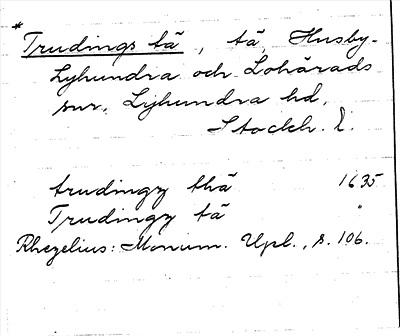 * Trudings tä, tä, Husby-
Lyhundra och Lohärads
snr, Lyhundra hd,
Stockh. l.
trudingz thä 1635
Trudingz tä "
Rhezelius: Monum. Upl., s. 106.